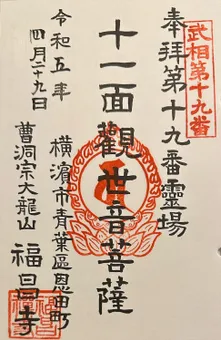 武相第十九番
奉拜第十九番靈場
十一面觀世音菩薩
横濱市青葉區恩田町
曹洞宗大龍山 福昌寺
令和五年
四月二十九日